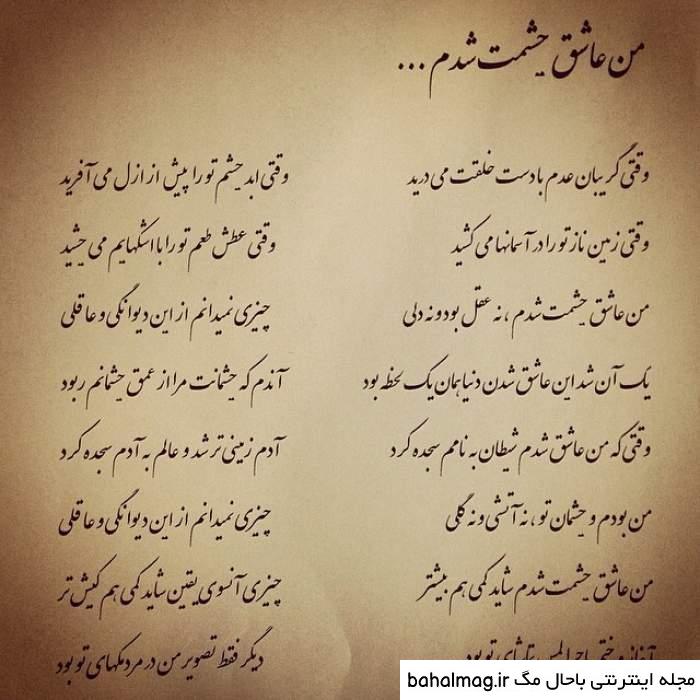 من عاشق چشمت شدم ...
وقتی گریبان عدم با دست خلقت می درید    وقتی ابد چشم تو را پیش از ازل می آفرید
وقتی زمین ناز تو را در آسمانها می کشید    وقتی عطش طعم تو را با اشکهایم می چشید
من عاشق چشمت شدم ، نه عقل بود و نه دلی    چیزی نمیدانم از این دیوانگی و عاقلی
یک آن شد این عاشق شدن دنیا همان یک لحظه بود    آندم که چشمانت مرا از عمق چشمانم ربود
وقتی که من عاشق شدم شیطان به نامم سجده کرد    آدم زمینی تر شد و عالم به آدم سجده کرد
من بودم و چشمان تو ، نه آتشی و نه گلی    چیزی نمیدانم از این دیوانگی و عاقلی
من عاشق چشمت شدم شاید کمی هم بیشتر    چیزی آنسوی یقین شاید کمی هم کیش تر
تو بود    دیگر فقط تصویر من در مردمکهای تو بود
مجله اینترنتی باحال مگ bahalmag.ir